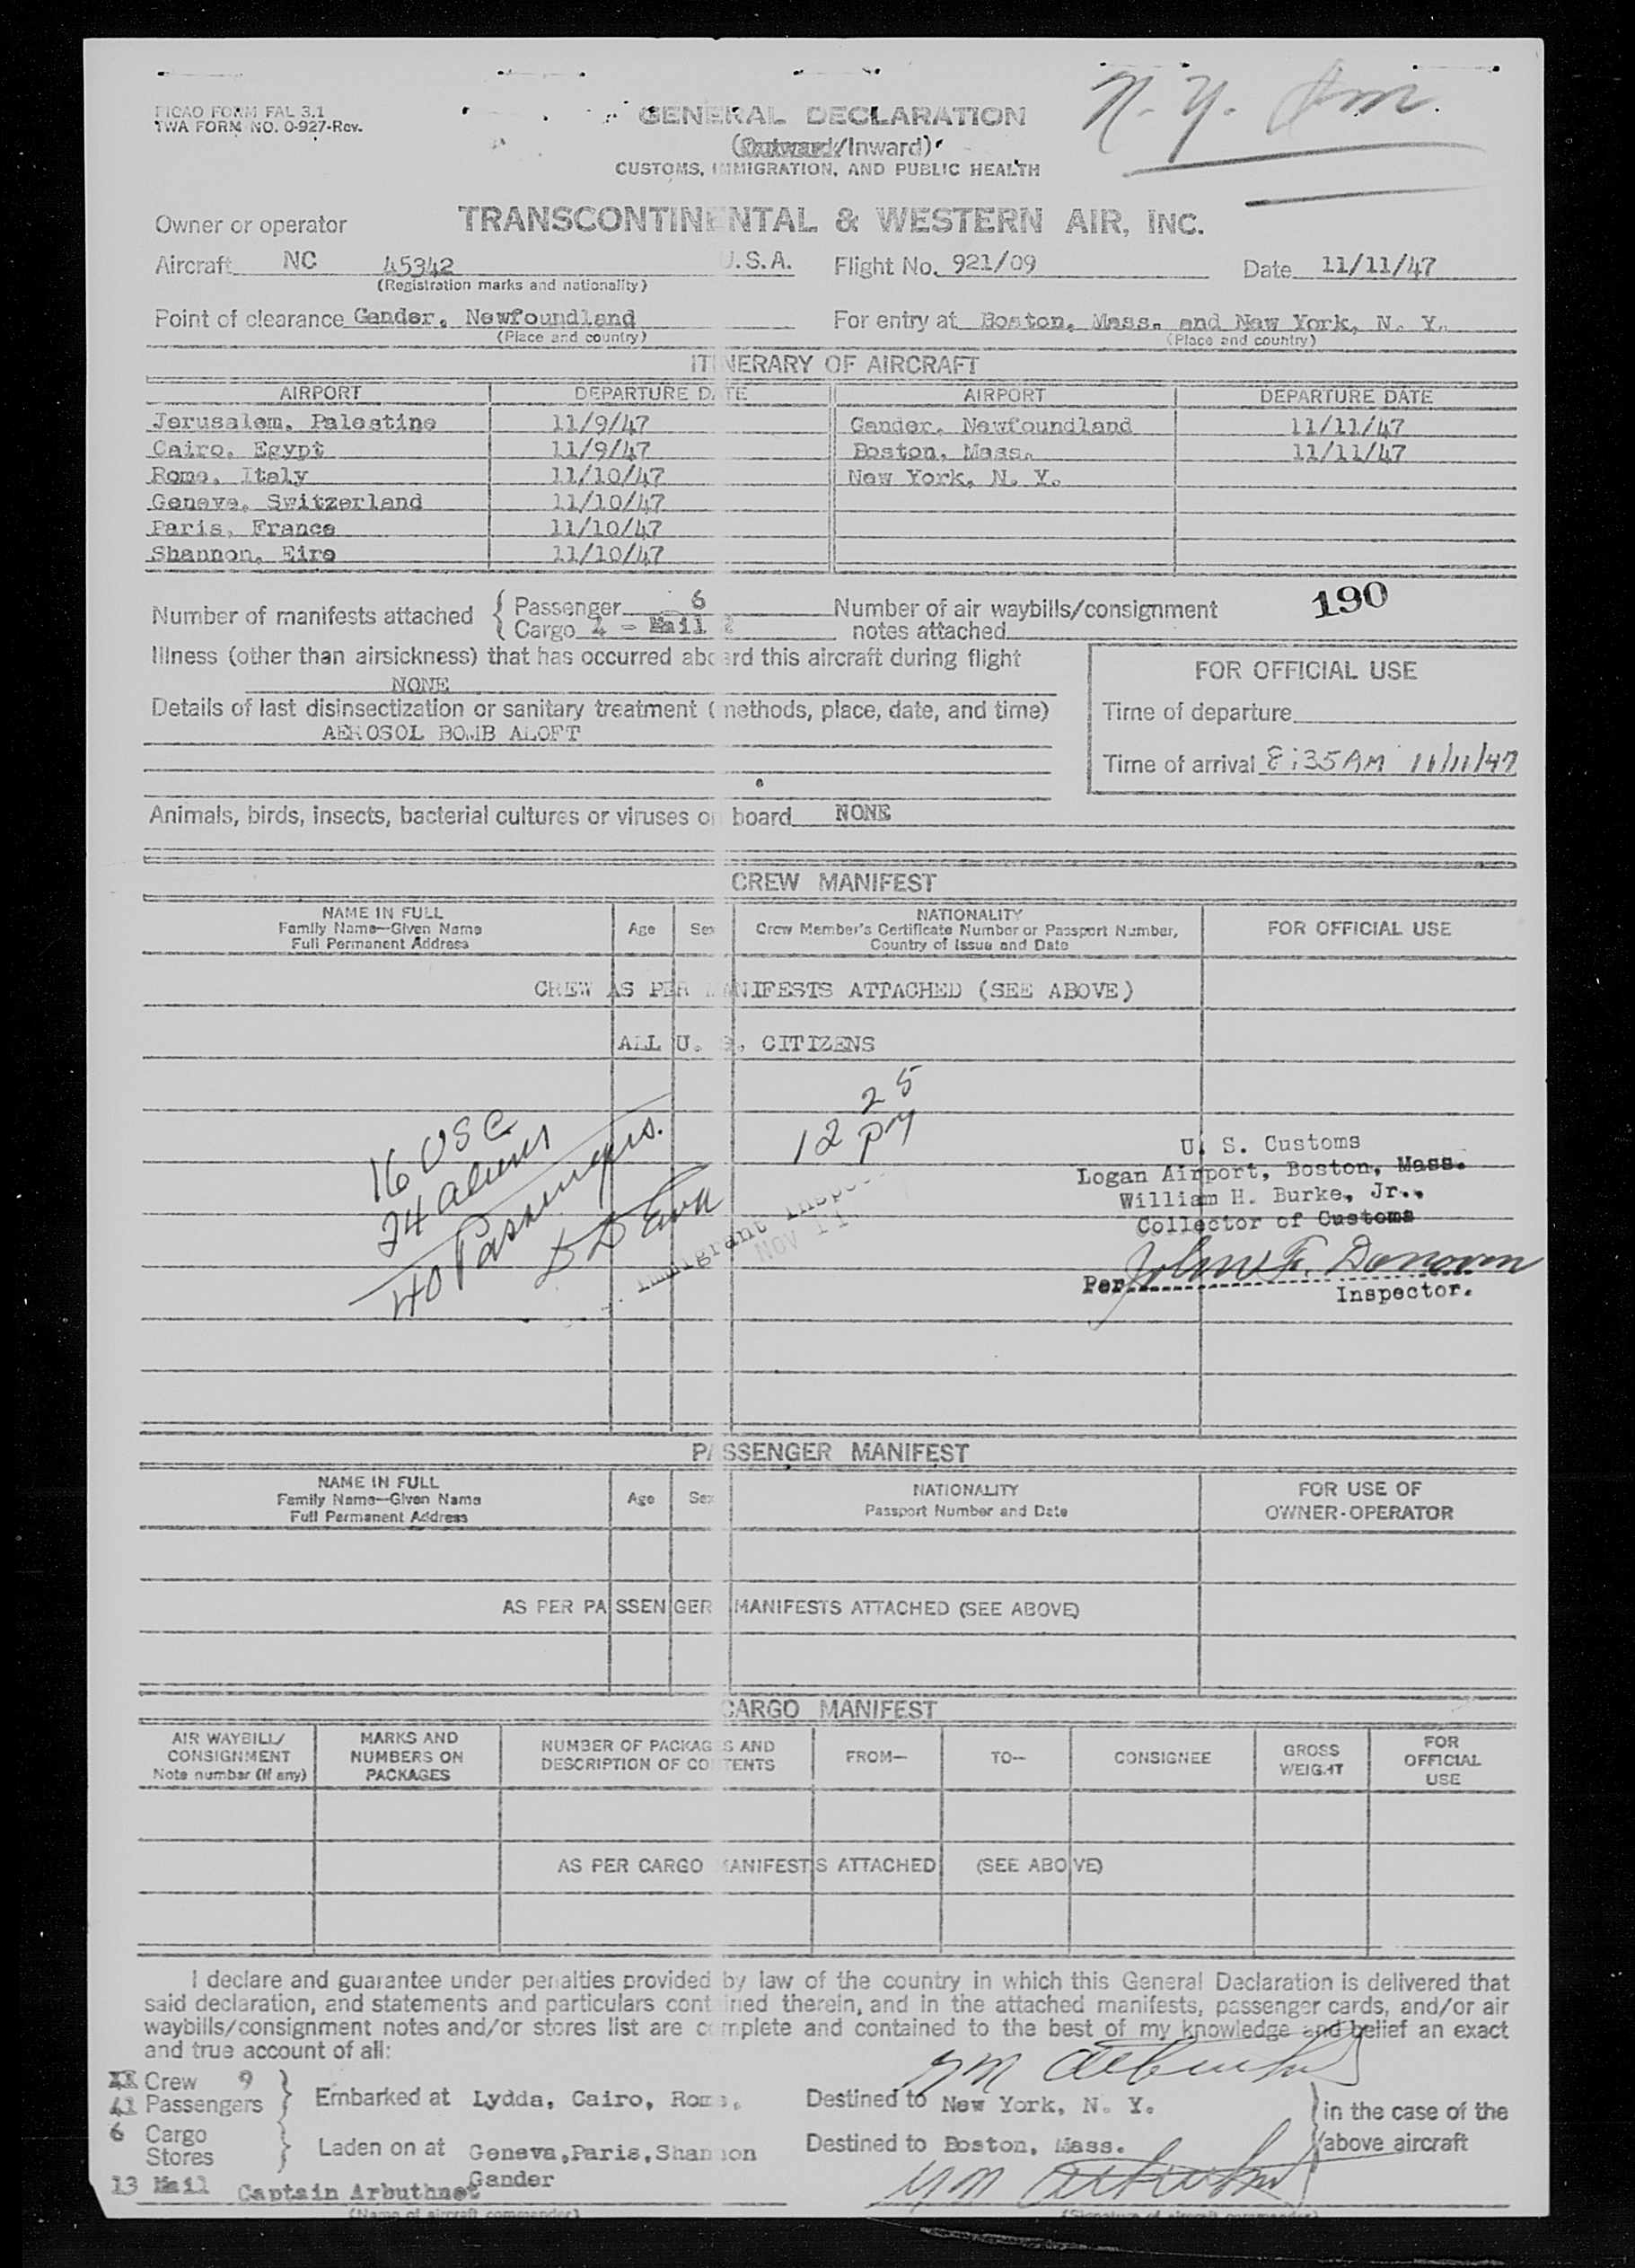 PICAO FORM FAL 3.1
TWA FORM NO. 0-927-Rev.
N.Y.
GENERAL DECLARATION
(Outward/Inward)
CUSTOMS, IMMIGRATION, AND PUBLIC HEALTH
Owner or operator TRANSCONTINENTAL & WESTERN AIR, INC.
Aircraft NC 45342 U.S.A. Flight No. 921/09 Date 11/11/47
(Registration marks and nationality)
Point of clearance Gander, Newfoundland For entry at Boston, Mass. and New York, N. Y.
(Place and country) (Place and country)
ITINERARY OF AIRCRAFT
AIRPORT DEPARTURE DATE AIRPORT DEPARTURE DATE
Jerusalem, Palestine 11/9/47 Gander, Newfoundland 11/11/47
Cairo, Egypt 11/9/47 Boston, Mass. 11/11/47
Rome, Italy 11/10/47 New York, N. Y.
Geneva, Switzerland 11/10/47
Paris, France 11/10/47
Shannon, Eire 11/10/47
Number of manifests attached { Passenger 6 Number of air waybills/consignment 190
Cargo 4 - Mail 2 notes attached
Illness (other than airsickness) that has occurred aboard this aircraft during flight
NONE
FOR OFFICIAL USE
Details of last disinsectization or sanitary treatment (methods, place, date, and time)
AEROSOL BOMB ALOFT
Time of departure
Time of arrival 8:35 AM 11/11/47
Animals, birds, insects, bacterial cultures or viruses on board NONE
CREW MANIFEST
NAME IN FULL
Family Name—Given Name
Full Permanent Address
Age Sex
NATIONALITY
Crew Member's Certificate Number or Passport Number,
Country of Issue and Date
FOR OFFICIAL USE
CREW AS PER MANIFESTS ATTACHED (SEE ABOVE)
ALL U. S. CITIZENS
16 USC
24 aliens
40 Passengers.
12 25
PM
Immigrant Inspec
NOV 11
U. S. Customs
Logan Airport, Boston, Mass.
William H. Burke, Jr.,
Collector of Customs
Per John F. Donovan
Inspector.
PASSENGER MANIFEST
NAME IN FULL
Family Name—Given Name
Full Permanent Address
Age Sex
NATIONALITY
Passport Number and Date
FOR USE OF
OWNER-OPERATOR
AS PER PASSENGER MANIFESTS ATTACHED (SEE ABOVE)
CARGO MANIFEST
AIR WAYBILL/
CONSIGNMENT
Note number (if any)
MARKS AND
NUMBERS ON
PACKAGES
NUMBER OF PACKAGES AND
DESCRIPTION OF CONTENTS
FROM—
TO—
CONSIGNEE
GROSS
WEIGHT
FOR
OFFICIAL
USE
AS PER CARGO MANIFESTS ATTACHED (SEE ABOVE)
I declare and guarantee under penalties provided by law of the country in which this General Declaration is delivered that
said declaration, and statements and particulars contained therein, and in the attached manifests, passenger cards, and/or air
waybills/consignment notes and/or stores list are complete and contained to the best of my knowledge and belief an exact
and true account of all:
Crew 9
41 Passengers Embarked at Lydda, Cairo, Rome, Destined to New York, N. Y. in the case of the
6 Cargo
Stores Laden on at Geneva,Paris,Shannon Destined to Boston, Mass. above aircraft
Gander
13 Mail Captain Arbuthnot
(Name of aircraft commander) (Signature of aircraft commander)